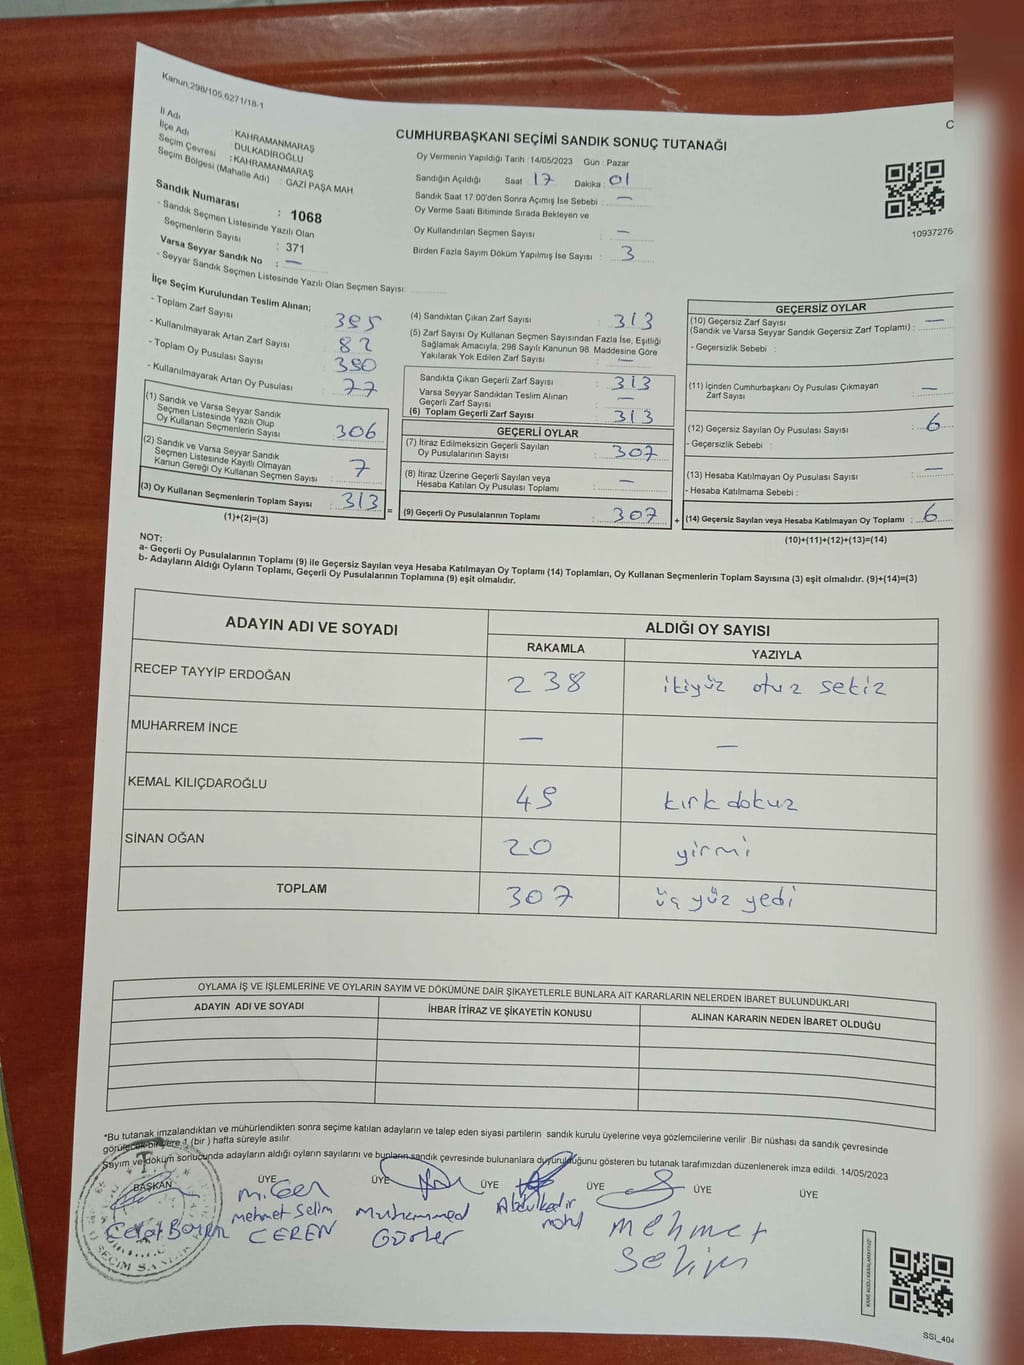 Kanun,298/105,6271/18-1
İl Adı KAHRAMANMARAŞ
İlçe Adı DULKADİROĞLU
Seçim Çevresi : KAHRAMANMARAŞ
Seçim Bölgesi (Mahalle Adı) : GAZİ PAŞA MAH.
Sandık Numarası : 1068
- Sandık Seçmen Listesinde Yazılı Olan
Seçmenlerin Sayısı : 371
Varsa Seyyar Sandık No : —
- Seyyar Sandık Seçmen Listesinde Yazılı Olan Seçmen Sayısı:
CUMHURBAŞKANI SEÇİMİ SANDIK SONUÇ TUTANAĞI
Oy Vermenin Yapıldığı Tarih : 14/05/2023 Gün : Pazar
Sandığın Açıldığı Saat : 17 Dakika : 01
Sandık Saat 17 00'den Sonra Açımış İse Sebebi : —
Oy Verme Saati Bitiminde Sırada Bekleyen ve
Oy Kullandırılan Seçmen Sayısı : —
Birden Fazla Sayım Döküm Yapılmış İse Sayısı : 3
10937276
İlçe Seçim Kurulundan Teslim Alınan;
- Toplam Zarf Sayısı 395
- Kullanılmayarak Artan Zarf Sayısı 82
- Toplam Oy Pusulası Sayısı 390
- Kullanılmayarak Artan Oy Pusulası 77
(1) Sandık ve Varsa Seyyar Sandık
Seçmen Listesinde Yazılı Olup
Oy Kullanan Seçmenlerin Sayısı : 306
(2) Sandık ve Varsa Seyyar Sandık
Seçmen Listesinde Kayıtlı Olmayan
Kanun Gereği Oy Kullanan Seçmen Sayısı : 7
(3) Oy Kullanan Seçmenlerin Toplam Sayısı : 313 =
(1)+(2)=(3)
(4) Sandıktan Çıkan Zarf Sayısı : 313
(5) Zarf Sayısı Oy Kullanan Seçmen Sayısından Fazla İse, Eşitliği
Sağlamak Amacıyla, 298 Sayılı Kanunun 98. Maddesine Göre
Yakılarak Yok Edilen Zarf Sayısı : —
Sandıkta Çıkan Geçerli Zarf Sayısı : 313
Varsa Seyyar Sandıktan Teslim Alınan
Geçerli Zarf Sayısı : —
(6) Toplam Geçerli Zarf Sayısı : 313
GEÇERLİ OYLAR
(7) İtiraz Edilmeksizin Geçerli Sayılan
Oy Pusulalarının Sayısı : 307
(8) İtiraz Üzerine Geçerli Sayılan veya
Hesaba Katılan Oy Pusulası Toplamı : —
(9) Geçerli Oy Pusulalarının Toplamı : 307 +
GEÇERSİZ OYLAR
(10) Geçersiz Zarf Sayısı
(Sandık ve Varsa Seyyar Sandık Geçersiz Zarf Toplamı) : —
- Geçersizlik Sebebi :
(11) İçinden Cumhurbaşkanı Oy Pusulası Çıkmayan
Zarf Sayısı : —
(12) Geçersiz Sayılan Oy Pusulası Sayısı : 6
- Geçersizlik Sebebi :
(13) Hesaba Katılmayan Oy Pusulası Sayısı : —
- Hesaba Katılmama Sebebi :
(14) Geçersiz Sayılan veya Hesaba Katılmayan Oy Toplamı : 6
(10)+(11)+(12)+(13)=(14)
NOT:
a- Geçerli Oy Pusulalarının Toplamı (9) ile Geçersiz Sayılan veya Hesaba Katılmayan Oy Toplamı (14) Toplamları, Oy Kullanan Seçmenlerin Toplam Sayısına (3) eşit olmalıdır. (9)+(14)=(3)
b- Adayların Aldığı Oyların Toplamı, Geçerli Oy Pusulalarının Toplamına (9) eşit olmalıdır.
ADAYIN ADI VE SOYADI ALDIĞI OY SAYISI
RAKAMLA YAZIYLA
RECEP TAYYİP ERDOĞAN 238 ikiyüz otuz sekiz
MUHARREM İNCE — —
KEMAL KILIÇDAROĞLU 49 kırk dokuz
SİNAN OĞAN 20 yirmi
TOPLAM 307 üç yüz yedi
OYLAMA İŞ VE İŞLEMLERİNE VE OYLARIN SAYIM VE DÖKÜMÜNE DAİR ŞİKAYETLERLE BUNLARA AİT KARARLARIN NELERDEN İBARET BULUNDUKLARI
ADAYIN ADI VE SOYADI İHBAR İTİRAZ VE ŞİKAYETİN KONUSU ALINAN KARARIN NEDEN İBARET OLDUĞU
*Bu tutanak imzalandıktan ve mühürlendikten sonra seçime katılan adayların ve talep eden siyasi partilerin sandık kurulu üyelerine veya gözlemcilerine verilir .Bir nüshası da sandık çevresinde
görülecek bir yere 1 (bir ) hafta süreyle asılır.
Sayım ve döküm sonucunda adayların aldığı oyların sayısını ve bunların sandık çevresinde bulunanlara duyurulduğunu gösteren bu tutanak tarafımızdan düzenlenerek imza edildi. 14/05/2023
BAŞKAN ÜYE ÜYE ÜYE ÜYE ÜYE ÜYE
Mehmet Selim
CEREN
Muhammed
Abdulkadir
Mehmet
Selim
SSİ_404